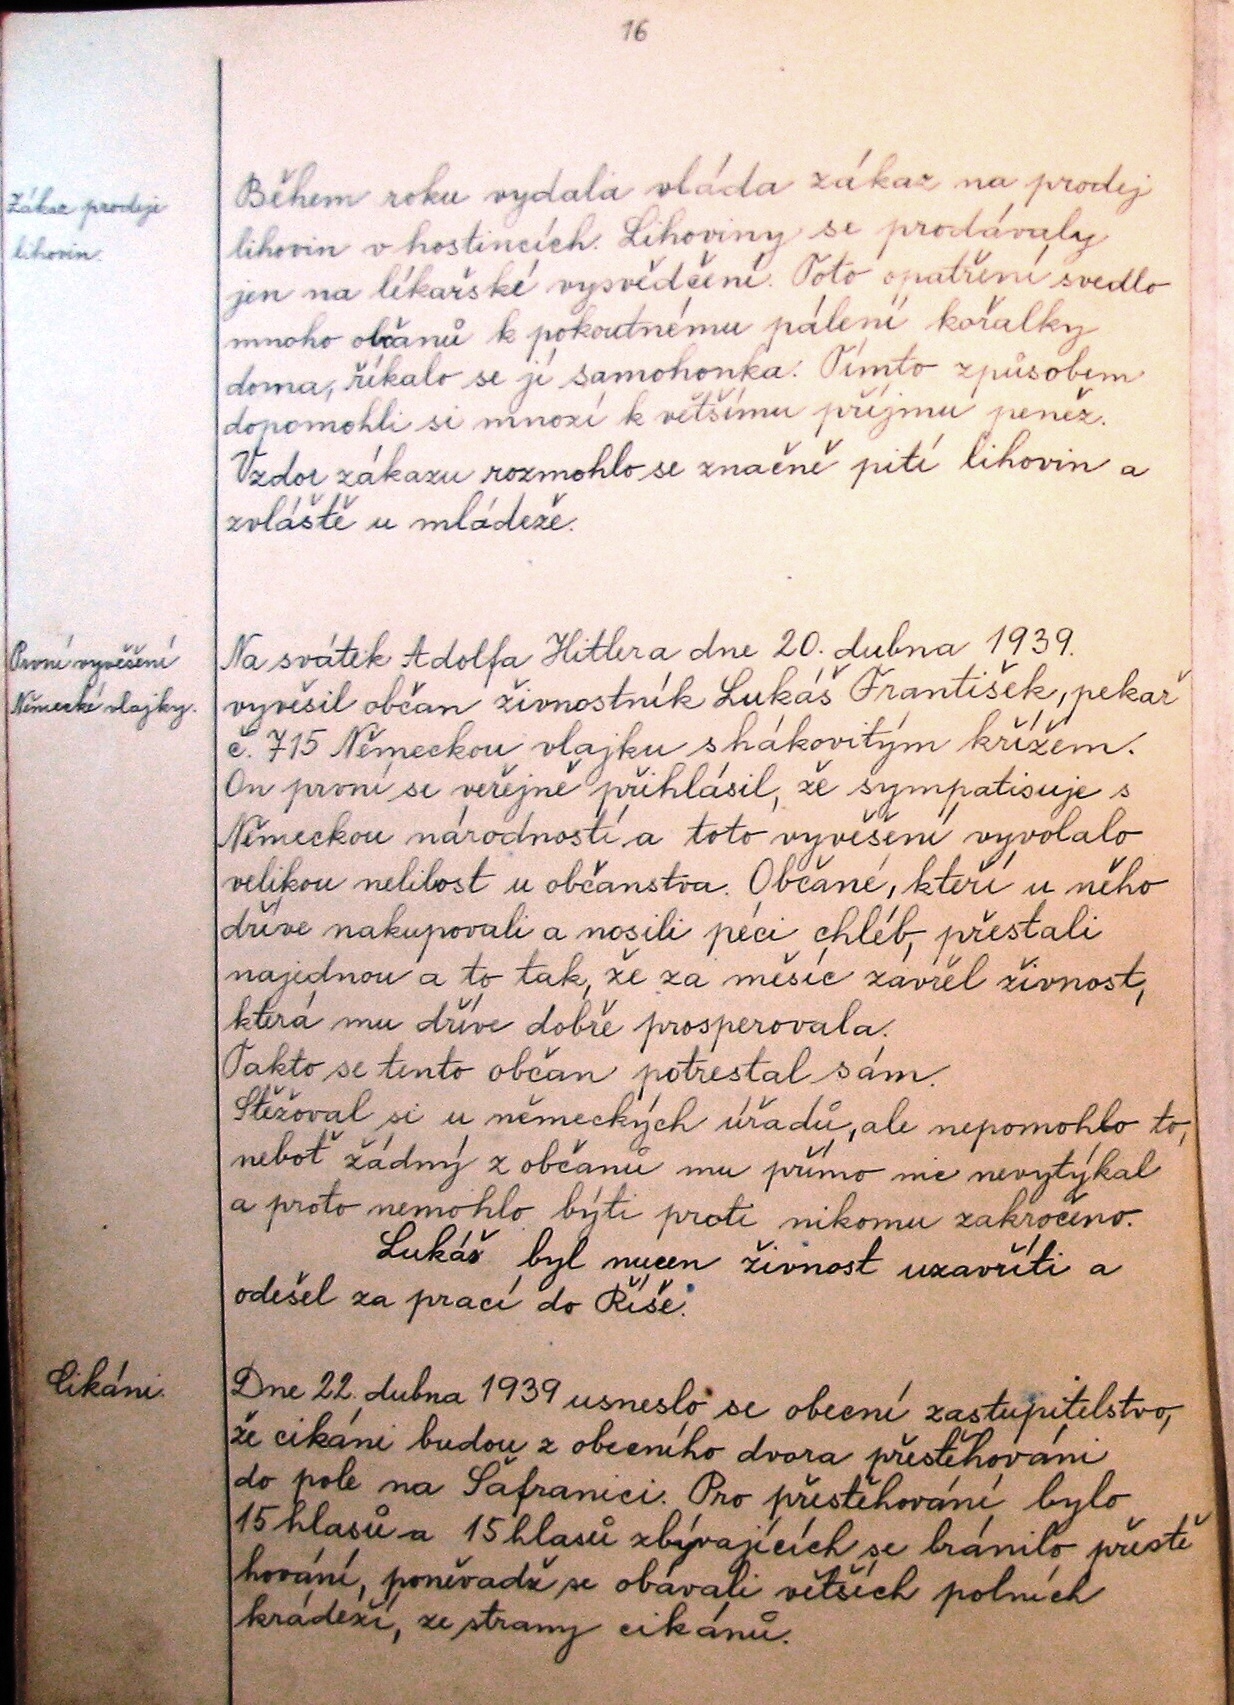 16
Zákaz prodeje
lihovin.
Během roku vydala vláda zákaz na prodej
lihovin v hostincích. Lihoviny se prodávaly
jen na lékařské vysvědčení. Toto opatření svedlo
mnoho občanů k pokoutnému pálení kořalky
doma, říkalo se jí samohonka. Tímto způsobem
dopomohli si mnozí k většímu příjmu peněz.
Vzdor zákazu rozmohlo se značně pití lihovin a
zvláště u mládeže.
První vyvěšení
Německé vlajky.
Na svátek Adolfa Hitlera dne 20. dubna 1939.
vyvěsil občan živnostník Lukáš František, pekař
č. 715 Německou vlajku s hákovitým křížem.
On první se veřejně přihlásil, že sympatisuje s
Německou národností a toto vyvěšení vyvolalo
velikou nelibost u občanstva. Občané, kteří u něho
dříve nakupovali a nosili péci chléb, přestali
najednou a to tak, že za měsíc zavřel živnost,
která mu dříve dobře prosperovala.
Takto se tento občan potrestal sám.
Stěžoval si u německých úřadů, ale nepomohlo to,
neboť žádný z občanů mu přímo nic nevytýkal
a proto nemohlo býti proti nikomu zakročeno.
Lukáš byl nucen živnost uzavříti a
odešel za prací do Říše.
Cikáni.
Dne 22. dubna 1939 usneslo se obecní zastupitelstvo,
že cikáni budou z obecního dvora přestěhováni
do pole na Šafranici. Pro přestěhování bylo
15 hlasů a 15 hlasů zbývajících se bránilo přestě
hování, poněvadž se obávali větších polních
krádeží, ze strany cikánů.